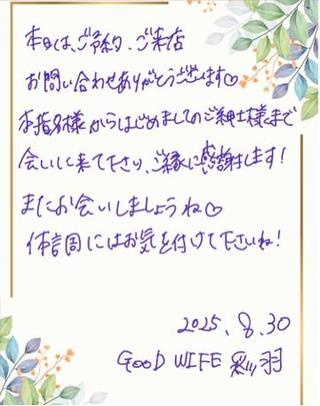 本日は、ご予約、ご来店
お問い合わせありがとうございます♡
本指名様からはじめましてのご紳士様まで
会いに来て下さり、ご縁に感謝します!
またお会いしましょうね♡
体調にはお気を付けて下さいね!
2025.8.30
GOOD WIFE 彩羽